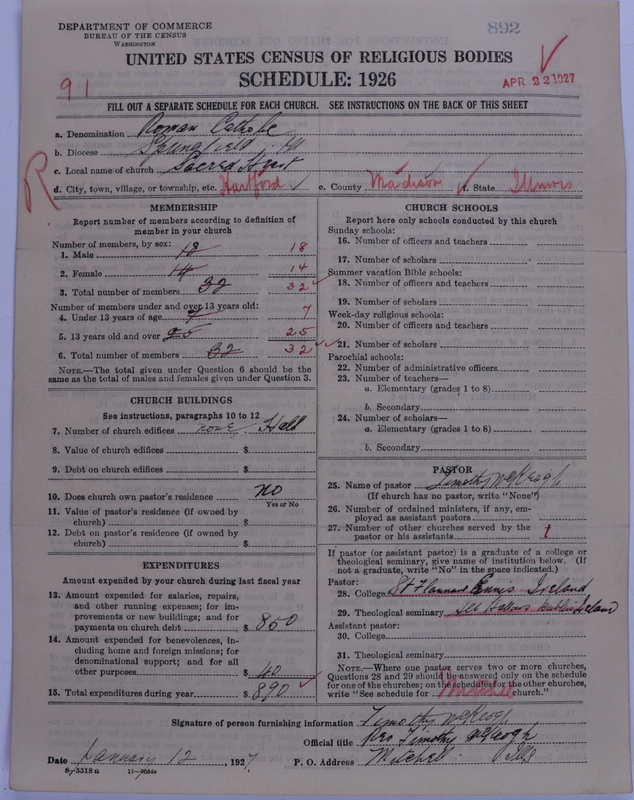 DEPARTMENT OF COMMERCE
BUREAU OF THE CENSUS
WASHINGTON
892
UNITED STATES CENSUS OF RELIGIOUS BODIES
SCHEDULE: 1926
91
APR 22 1927
FILL OUT A SEPARATE SCHEDULE FOR EACH CHURCH. SEE INSTRUCTIONS ON THE BACK OF THIS SHEET
R
a. Denomination Roman Catholic
b. Diocese Springfield, Ill
c. Local name of church Sacred Heart
d. City, town, village, or township, etc. Hartford e. County Madison f. State Illinois
MEMBERSHIP
Report number of members according to definition of
member in your church
Number of members, by sex:
1. Male 18 18
2. Female 14 14
3. Total number of members 32 32
Number of members under and over 13 years old:
4. Under 13 years of age 7 7
5. 13 years old and over 25 25
6. Total number of members 32 32
NOTE.—The total given under Question 6 should be
same as the total of males and females given under Question 3.
CHURCH BUILDINGS
See instructions, paragraphs 10 to 12
7. Number of church edifices none Hall
8. Value of church edifices $
9. Debt on church edifices $
10. Does church own pastor's residence no
Yes or No
11. Value of pastor's residence (if owned by
church) $
12. Debt on pastor's residence (if owned by
church) $
EXPENDITURES
Amount expended by your church during last fiscal year
13. Amount expended for salaries, repairs,
and other running expenses; for im-
provements or new buildings; and for
payments on church debt $ 850
14. Amount expended for benevolences, in-
cluding home and foreign missions; for
denominational support; and for all
other purposes $ 40
15. Total expenditures during year $ 890
CHURCH SCHOOLS
Report here only schools conducted by this church
Sunday schools:
16. Number of officers and teachers
17. Number of scholars
Summer vacation Bible schools:
18. Number of officers and teachers
19. Number of scholars
Week-day religious schools:
20. Number of officers and teachers
21. Number of scholars
Parochial schools:
22. Number of administrative officers
23. Number of teachers—
a. Elementary (grades 1 to 8)
b. Secondary
24. Number of scholars—
a. Elementary (grades 1 to 8)
b. Secondary
PASTOR
25. Name of pastor Timothy McKeogh
(If church has no pastor, write "None")
26. Number of ordained ministers, if any, em-
ployed as assistant pastors
27. Number of other churches served by the
pastor or his assistants 1
If pastor (or assistant pastor) is a graduate of a college or
theological seminary, give name of institution below. (If
not a graduate, write "No" in the space indicated.)
Pastor:
28. College St Flannans Ennis Ireland
29. Theological seminary All Hallows Dublin Ireland
Assistant pastor:
30. College
31. Theological seminary
NOTE.—Where one pastor serves two or more churches,
Questions 28 and 29 should be answered only on the schedule
for one of the churches; on the schedules for the other churches,
write "See schedule for church."
Signature of person furnishing information Timothy McKeogh
Official title Rev Timothy McKeogh
Date January 12, 1927 P. O. Address Mitchell Ills
8-5518a 11-9654c